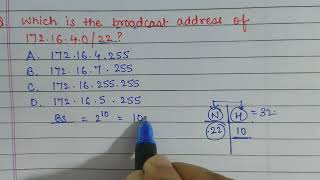 Which is the broadcast address of
172.16.4.0/22?
A. 172.16.4.255
B. 172.16.7.255
C. 172.16.255.255
D. 172.16.5.255
BS = 2^10 = 10
N H = 32
.22 10